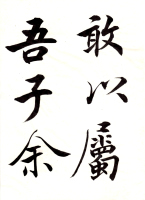 敢以屬
吾子余